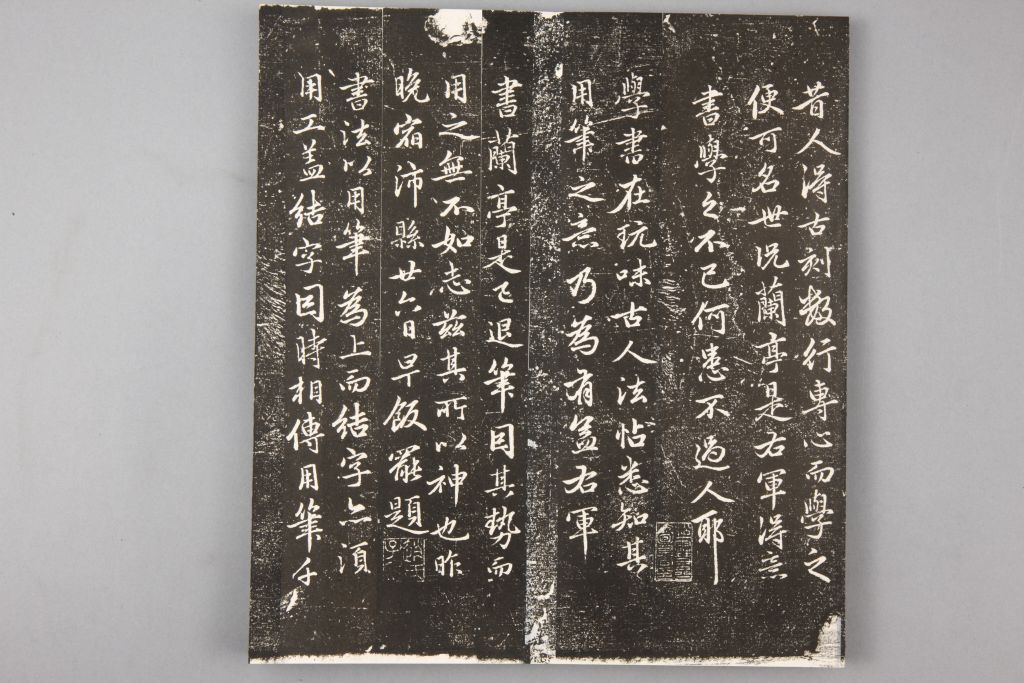 昔人得古刻數行專心而學之
便可名世況蘭亭是右軍得意
書學之不已何患不過人耶
學書在玩味古人法帖悉知其
用筆之意乃為有益右軍
書蘭亭是已退筆因其勢而
用之無不如志茲其所以神也昨
晚宿沛縣廿六日早飯罷題
書法以用筆為上而結字亦須
用工蓋結字因時相傳用筆千